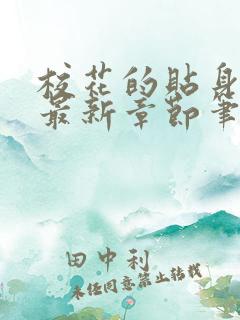 校花的贴身
最新章节笔
田中利
未经同意禁止转载